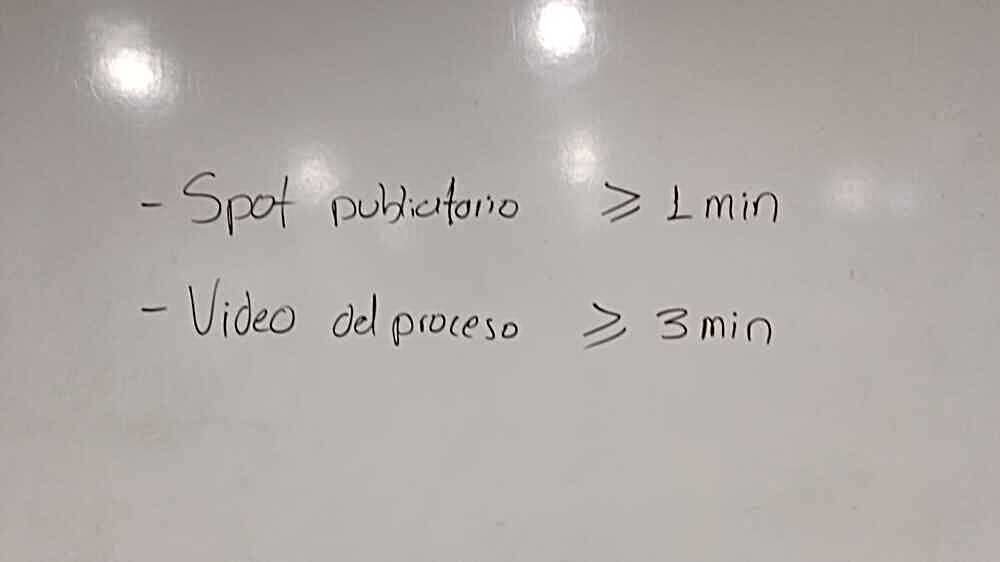 - Spot publicitario ⩾ 1 min
- Video del proceso ⩾ 3 min